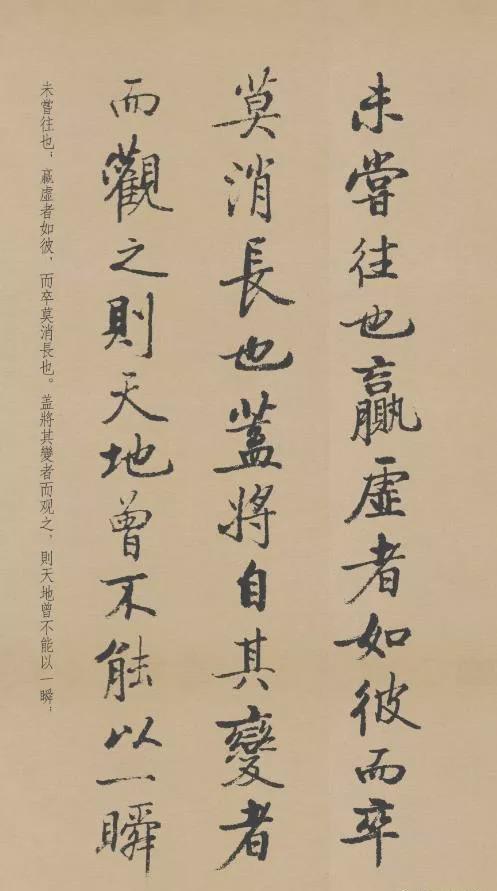 未嘗往也贏虛者如彼而卒
莫消長也蓋將自其變者
而觀之則天地曾不能以一瞬
未嘗往也；贏虛者如彼，而卒莫消長也。蓋將其變者而观之，則天地曾不能以一瞬；